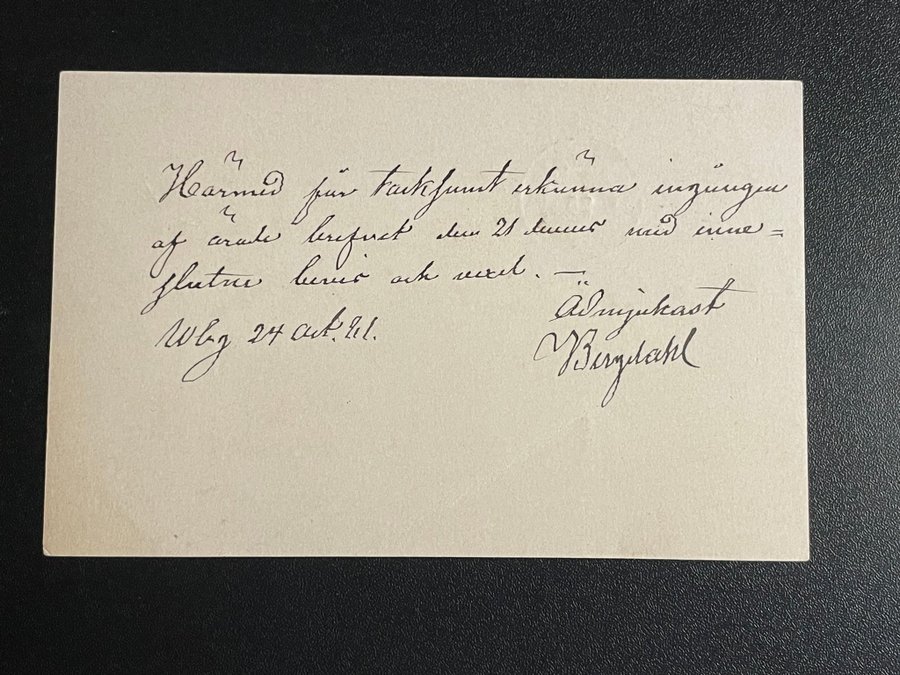 Härmed får tacksamt erkänna ingången
af ärade brefvet den 21 dennes med inne=
slutne bevis och vexel. —
Wbg 24 Oct. 81.
Ödmjukast
Bergdahl